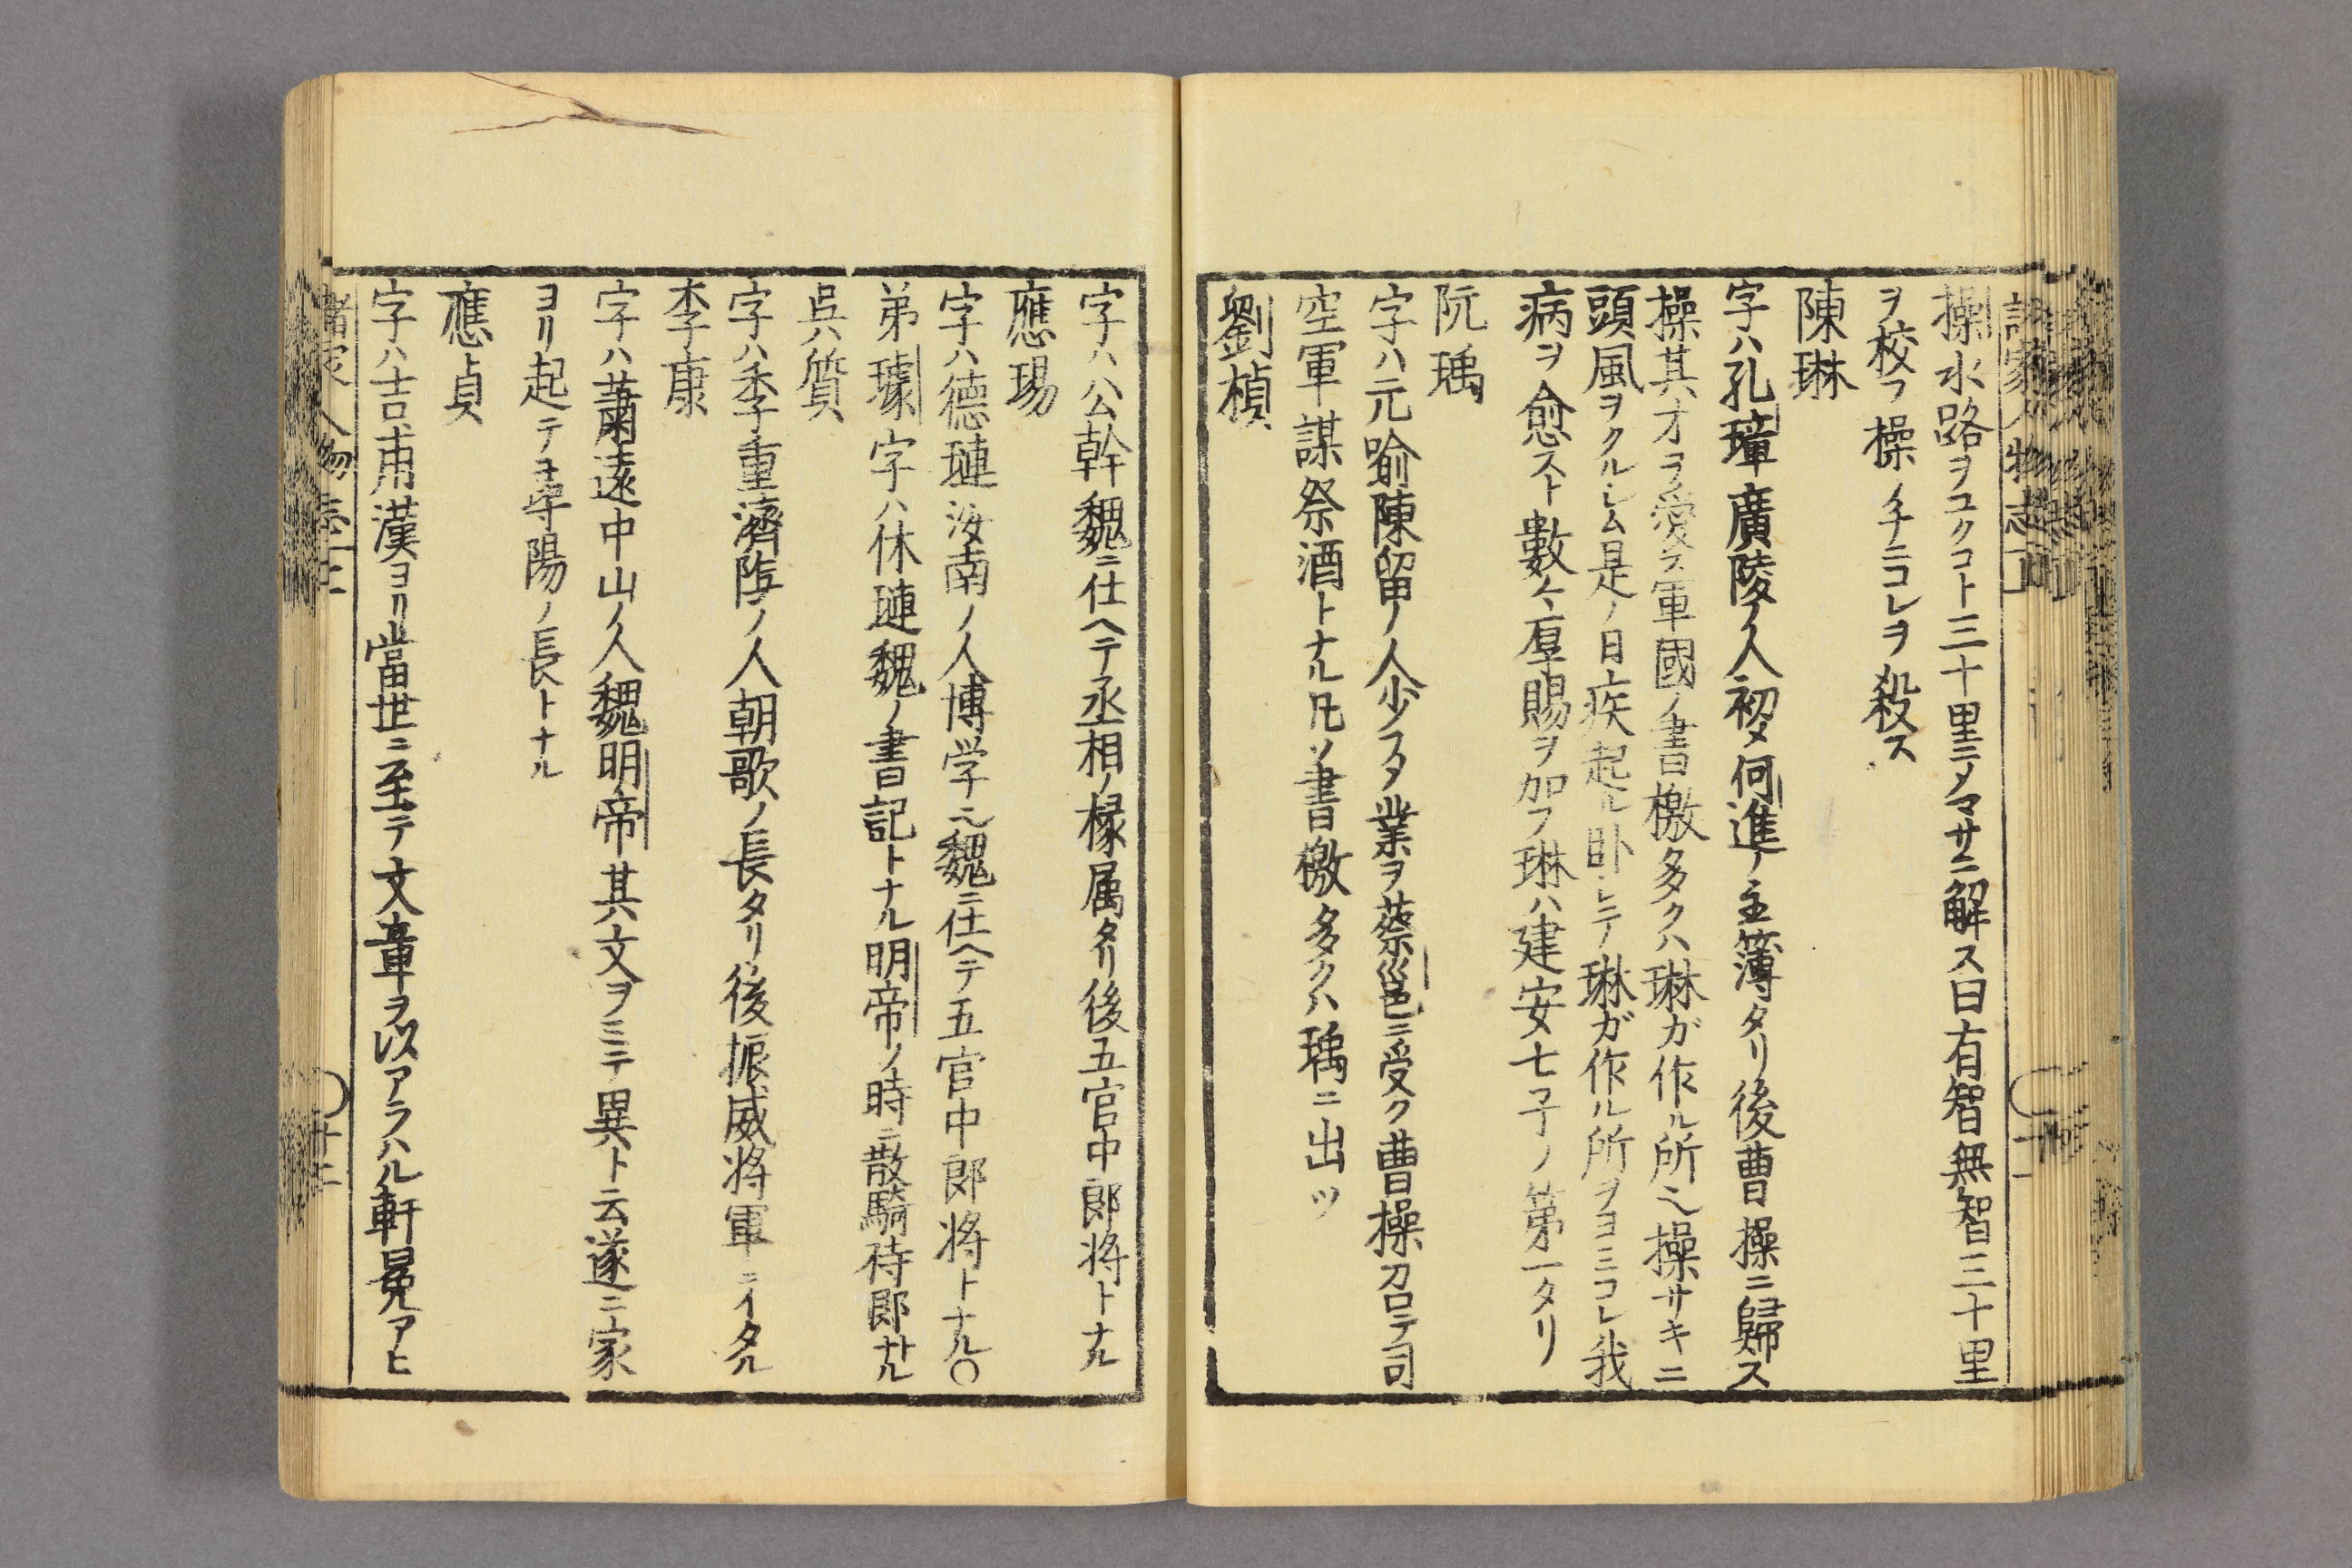 操水路ヲユクコト三十里ニノマサニ解ス曰有智無智三十里
ヲ校フ操ノチニコレヲ殺ス
陳琳
字ハ孔璋廣陵ノ人初メ何進ノ主簿タリ後曹操ニ歸ス
操其才ヲ愛ス軍國ノ書檄多クハ琳ガ作ル所ヘ操サキニ
頭風ヲクルシム是ノ日疾起ル臥シテ琳ガ作ル所ヲヨミコレ我
病ヲ愈スト數〻厚賜ヲ加フ琳ハ建安七子ノ第一タリ
阮瑀
字ハ元瑜陳留ノ人少フタ業ヲ蔡邕ニ受ク曹操召テ司
空軍謀祭酒トナル凡ソ書檄多クハ瑀ニ出ツ
劉楨
字ハ公幹魏ニ仕ヘテ丞相ノ椽属タリ後五官中郎將トナル
應瑒
字ハ德璉汝南ノ人博学ニ魏ニ仕ヘテ五官中郎将トナル〇
弟璩字ハ休璉魏ノ書記トナル明帝ノ時ニ散騎待郎ナル
呉質
字ハ季重濟陰ノ人朝歌ノ長タリ後振威将軍ニイタル
李康
字ハ蕭遠中山ノ人魏明帝其文ヲミテ異ト云遂ニ家
ヨリ起テヨ尋陽ノ長トナル
應貞
字ハ吉甫漢ヨリ當世ニ至テ文章ヲ以アラハル軒冕アヒ
諸家人物志上
十二